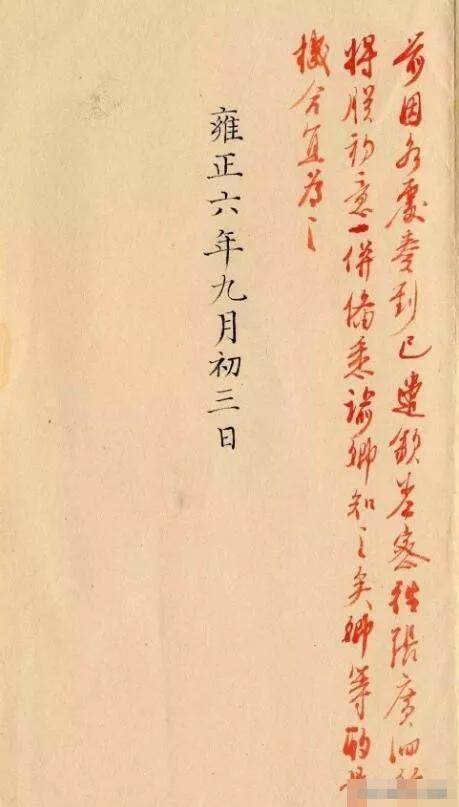 前因各處奏到已密張廣泗
將朕初意一併備悉諭卿知之矣卿等酌量
機合宜為之
雍正六年九月初三日